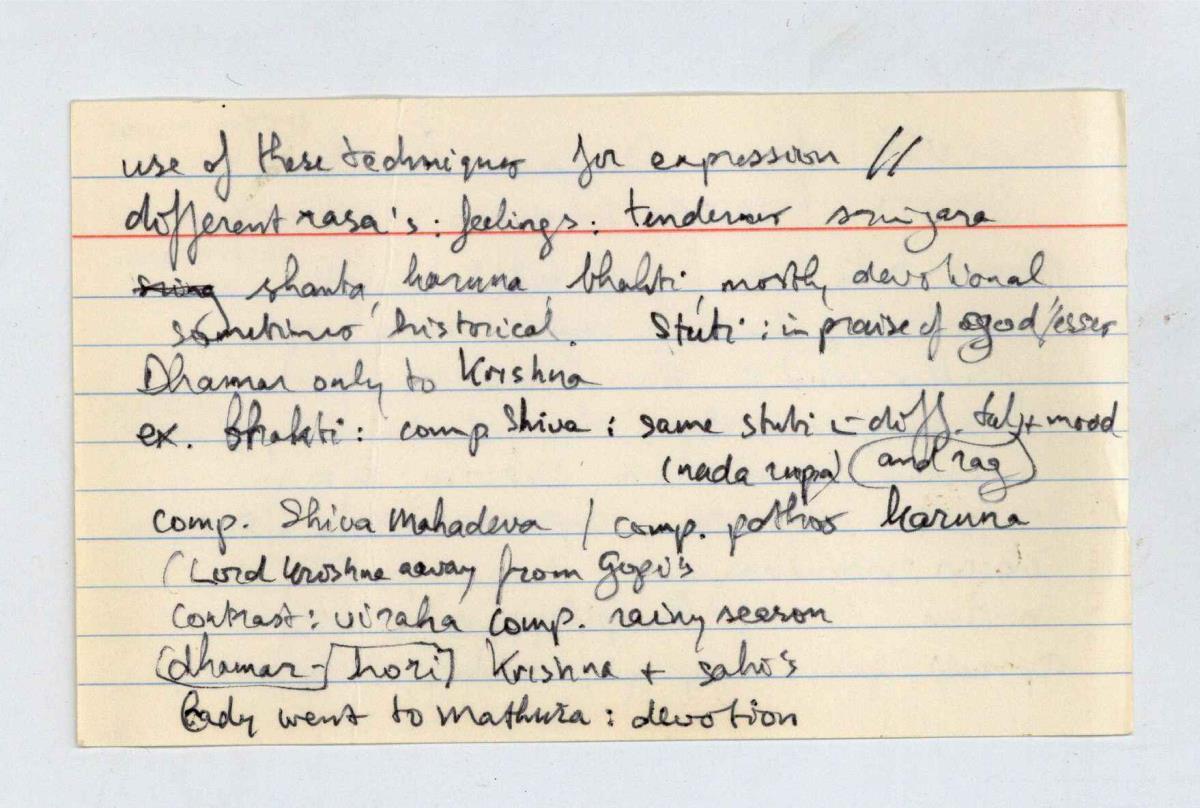 use of these techniques for expression //
different rasa's : feelings : tenderness sringara
shanta, karuna, bhakti, mostly devotional
sometimes historical. Stuti : in praise of god/esses
Dhamar only to Krishna
ex. bhakti : comp. Shiva : same stuti diff. tal + mood
(nada rupa) and rag
comp. Shiva Mahadeva / comp. pathos karuna
(Lord Krishna away from Gopi's
contrast : viraha comp. rainy season
(dhamar - hori) Krishna + sakhi's
Lady went to Mathura : devotion